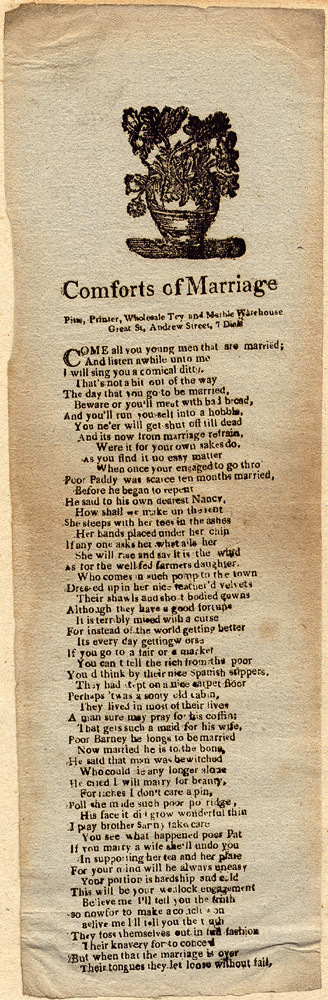 Comforts of Marriage
Pitts, Printer, Wholesale Toy and Marble Warehouse
Great St, Andrew Street, 7 Dials
COME all you young men that are married;
And listen awhile unto me
I will sing you a comical ditty.
That's not a bit out of the way
The day that you go to be married,
Beware or you'll meet with bad bread,
And you'll run yourself into a hobble,
You ne'er will get shut off till dead
And its now from marriage refrain,
Were it for your own sakes do.
As you find it no easy matter
When once your engaged to go thro
Poor Paddy was scarce ten months married,
Before he began to repent
He said to his own dearest Nancy,
How shall we make up the rent
She sleeps with her toes in the ashes
Her hands placed under her chin
If any one asks her what ails her
She will rise and say it is the wind
As for the well fed farmers daughter.
Who comes in such pomp to the town
Dressed up in her nice feather'd velvets
Their shawls and short bodied gowns
Although they have a good fortune
It is terribly mixed with a curse
For instead of the world getting better
Its every day getting worse
If you go to a fair or a market
You can t tell the rich from the poor
You d think by their nice Spanish slippers.
They had slept on a nice carpet floor
Perhaps 'twas a sooty old cabin,
They lived in most of their lives
A man sure may pray for his coffin
That gets such a maid for his wife,
Poor Barney he longs to be married
Now married he is to the bone,
He said that man was bewitched
Who could lie any longer alone
He cried I will marry for beauty,
For riches I don't care a pin,
Poll she made such poor porridge,
His face it did grow wonderful thin
I pray brother Barny take care
You see what happened poor Pat
If you marry a wife she'll undo you
In supporting her tea and her plate
For your mind will be always uneasy
Your portion is hardship and cold
This will be your wedlock engagement
Believe me I'll tell you the truth
So now for to make a conclusion
Believe me I ll tell you the truth
They toss themselves out in the fashion
Their knavery for to conceal
But when that the marriage is over
Their tongues they let loose without fail,